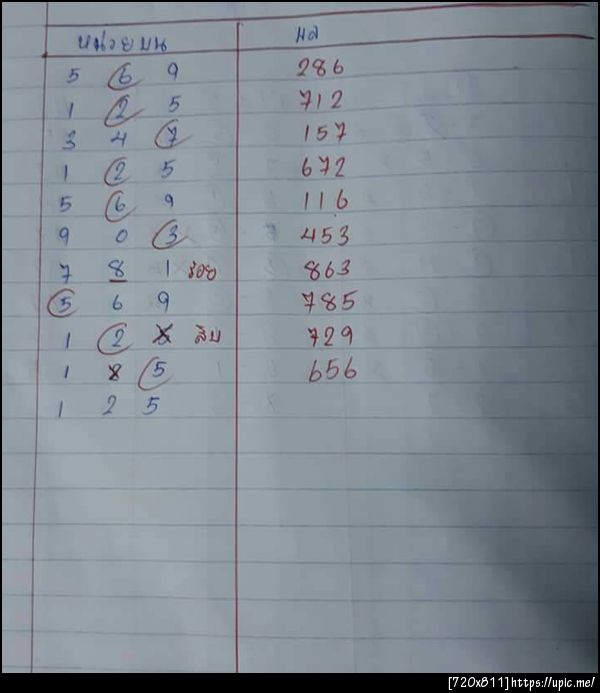 หน่วยบน ผล
5 6 9 286
1 2 5 712
3 4 7 157
1 2 5 672
5 6 9 116
9 0 3 453
7 8 1 ร้อย 863
5 6 9 785
1 2 สิบ 729
1 8 5 656
1 2 5
[720x811]https://upic.me/